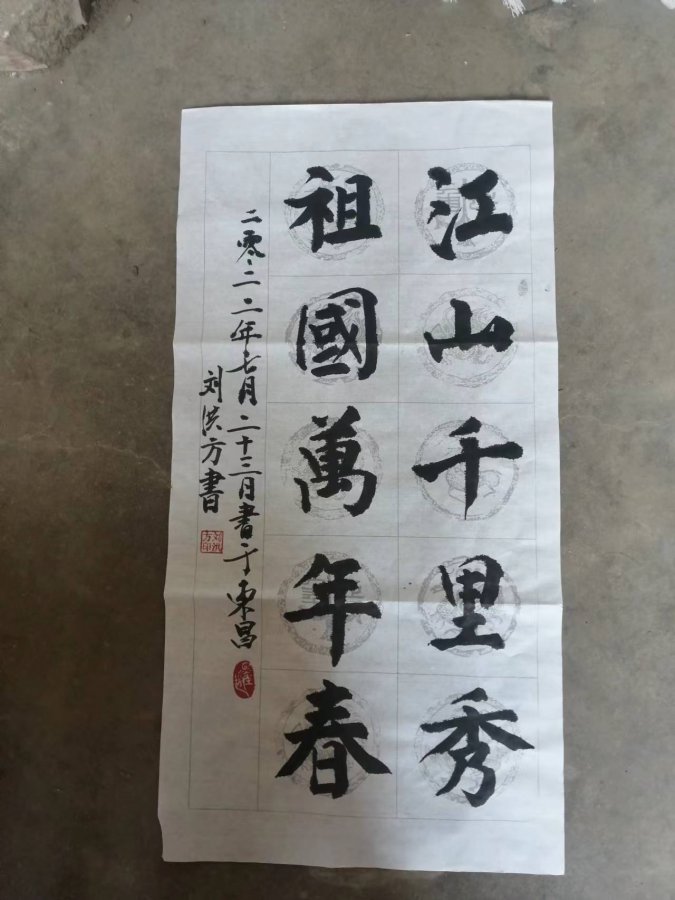 江山千里秀
祖國萬年春
二零二二年七月二十三日書于東昌
刘洪方書